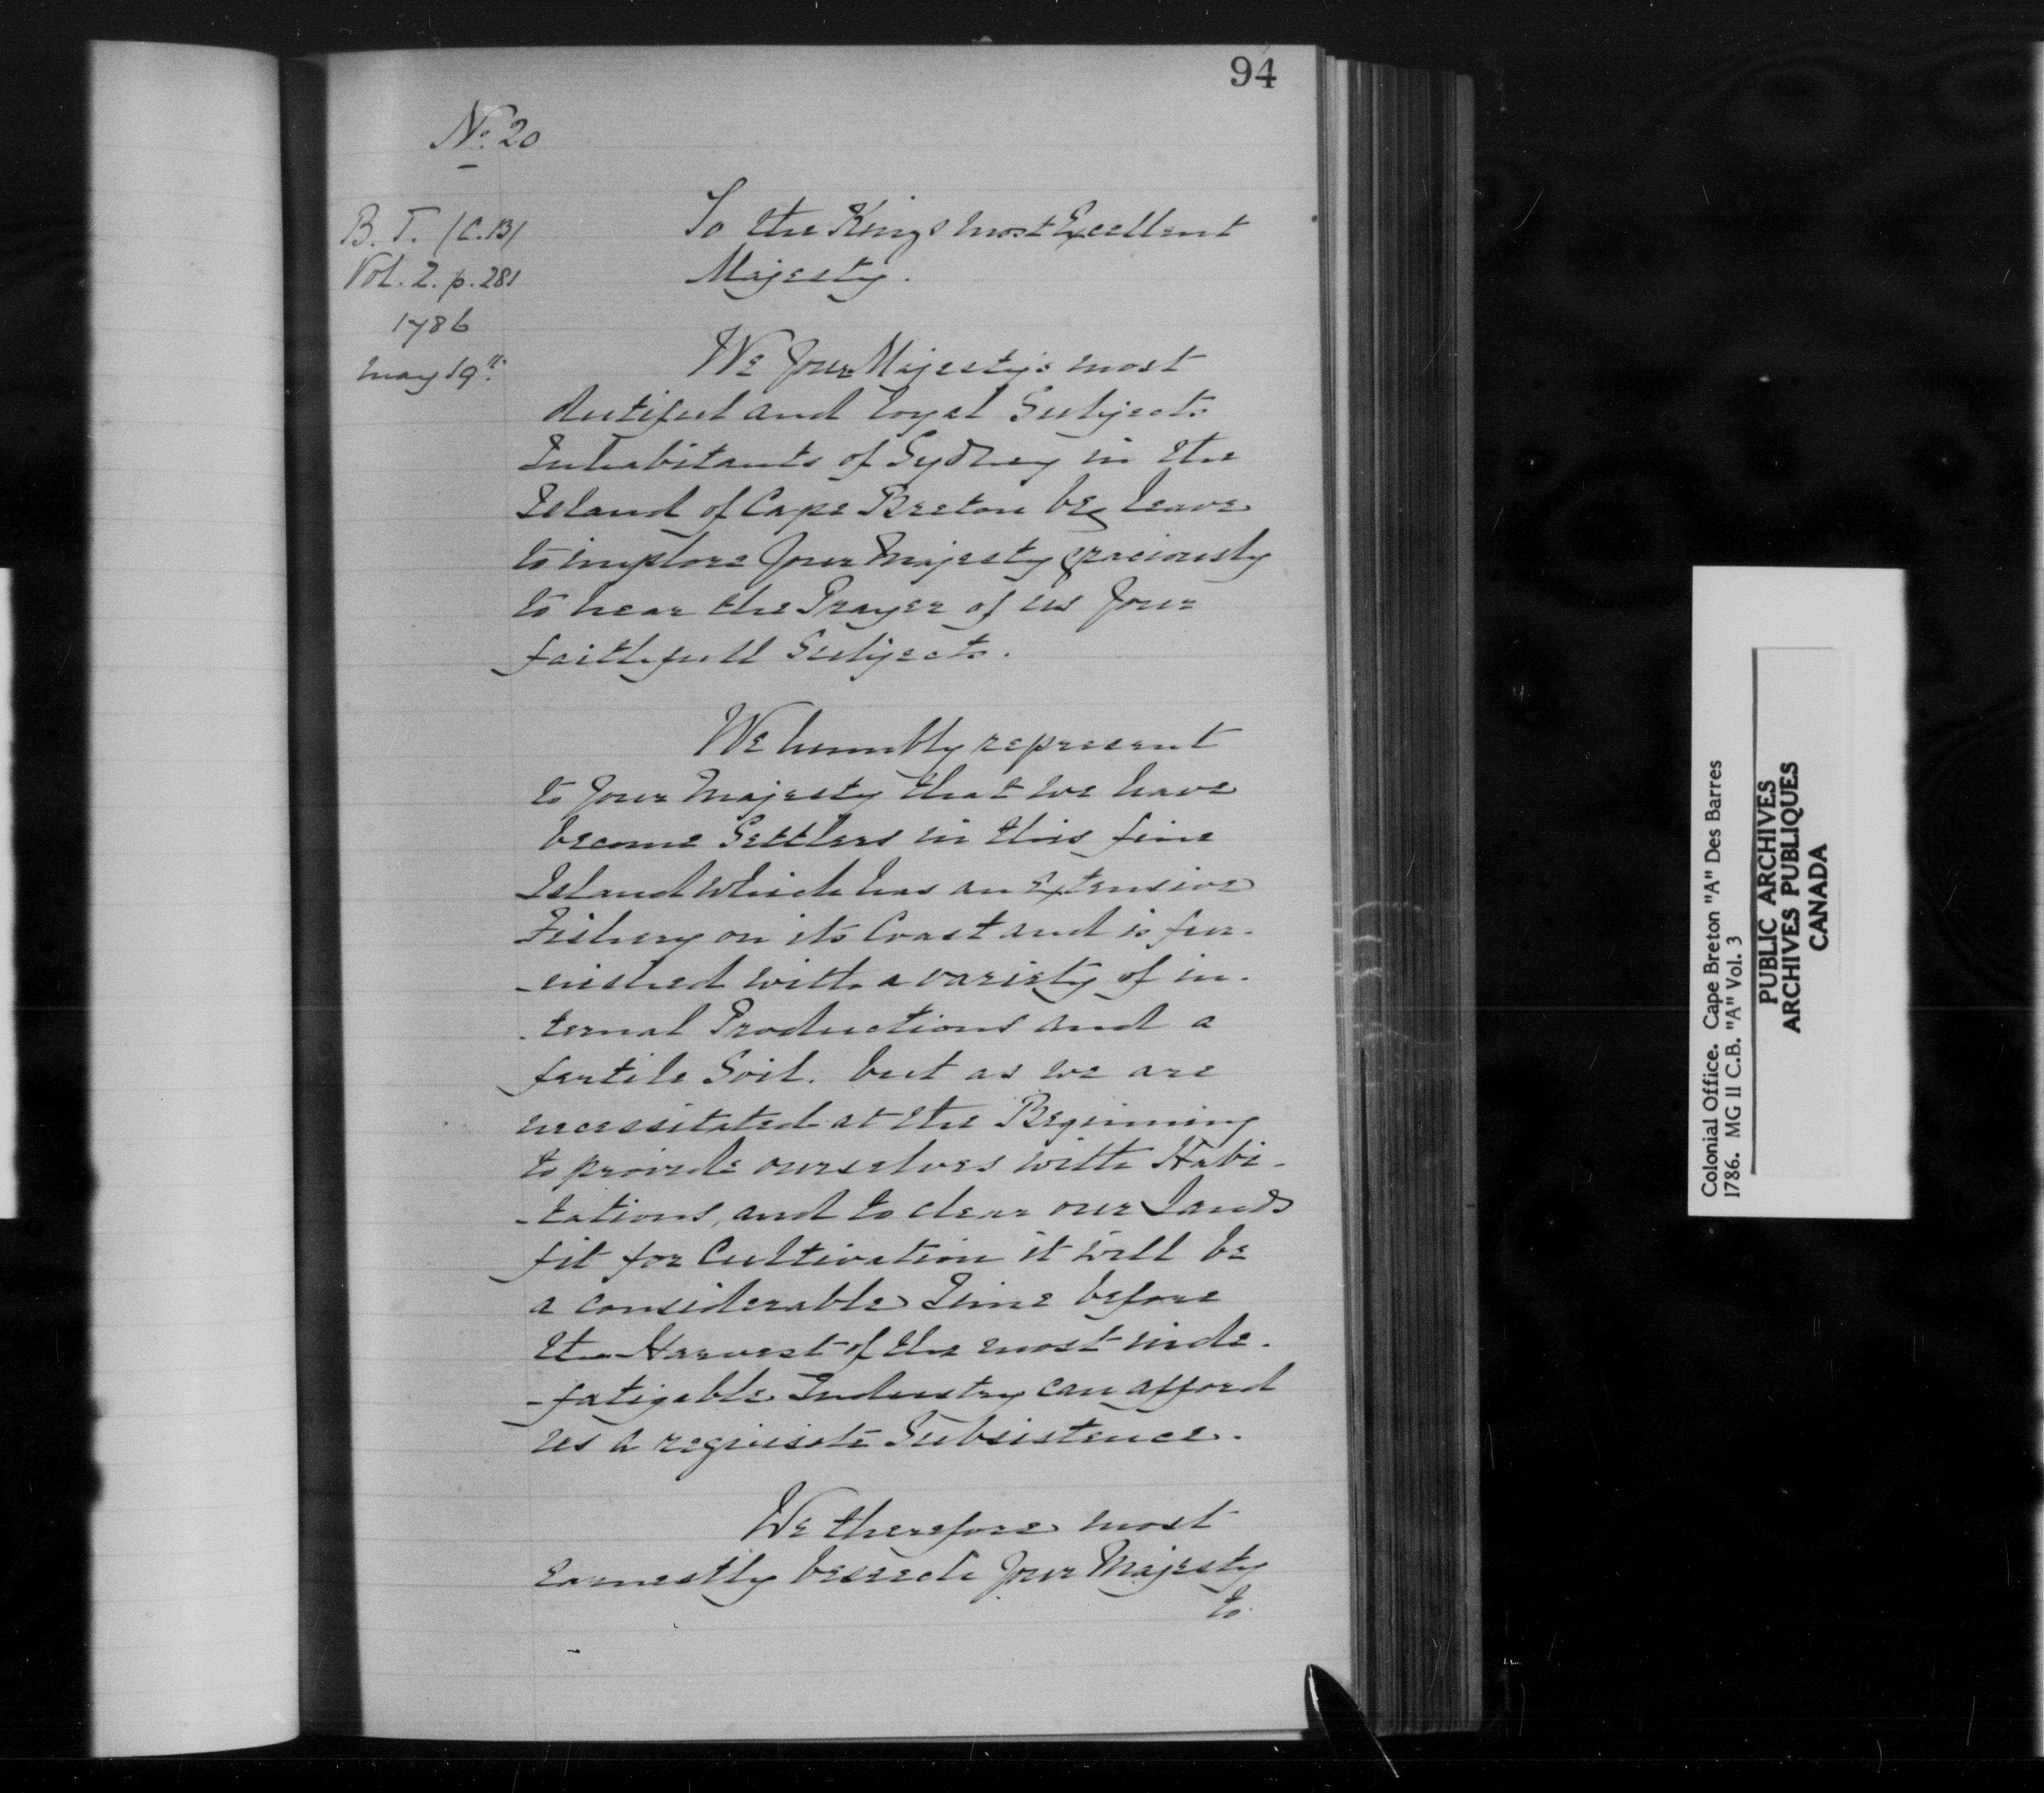 94
No. 20
B. T. (C.B)
Vol. 2. p. 281
1786
May 19th.
To the Kings most Excellent
Majesty.
We Your Majesty's most
dutiful and loyal Subjects
Inhabitants of Sydney in the
Island of Cape Breton beg leave
to implore Your Majesty graciously
to hear the Prayer of us Your
faithfull Subjects.
We humbly represent
to Your Majesty that we have
become Settlers in this fine
Island which has an extensive
Fishery on its Coast and is fur-
-nished with a variety of in-
-ternal Productions and a
fertile Soil. but as we are
necessitated at the Beginning
to provide ourselves with Habi-
-tations, and to clear our Lands
fit for Cultivation it will be
a considerable Time before
the Harvest of the most inde-
-fatigable Industry can afford
us a requisite Subsistence.
We therefore most
earnestly beseech Your Majesty
to
Colonial Office. Cape Breton "A" Des Barres
1786. MG 11 C.B. "A" Vol. 3
PUBLIC ARCHIVES
ARCHIVES PUBLIQUES
CANADA